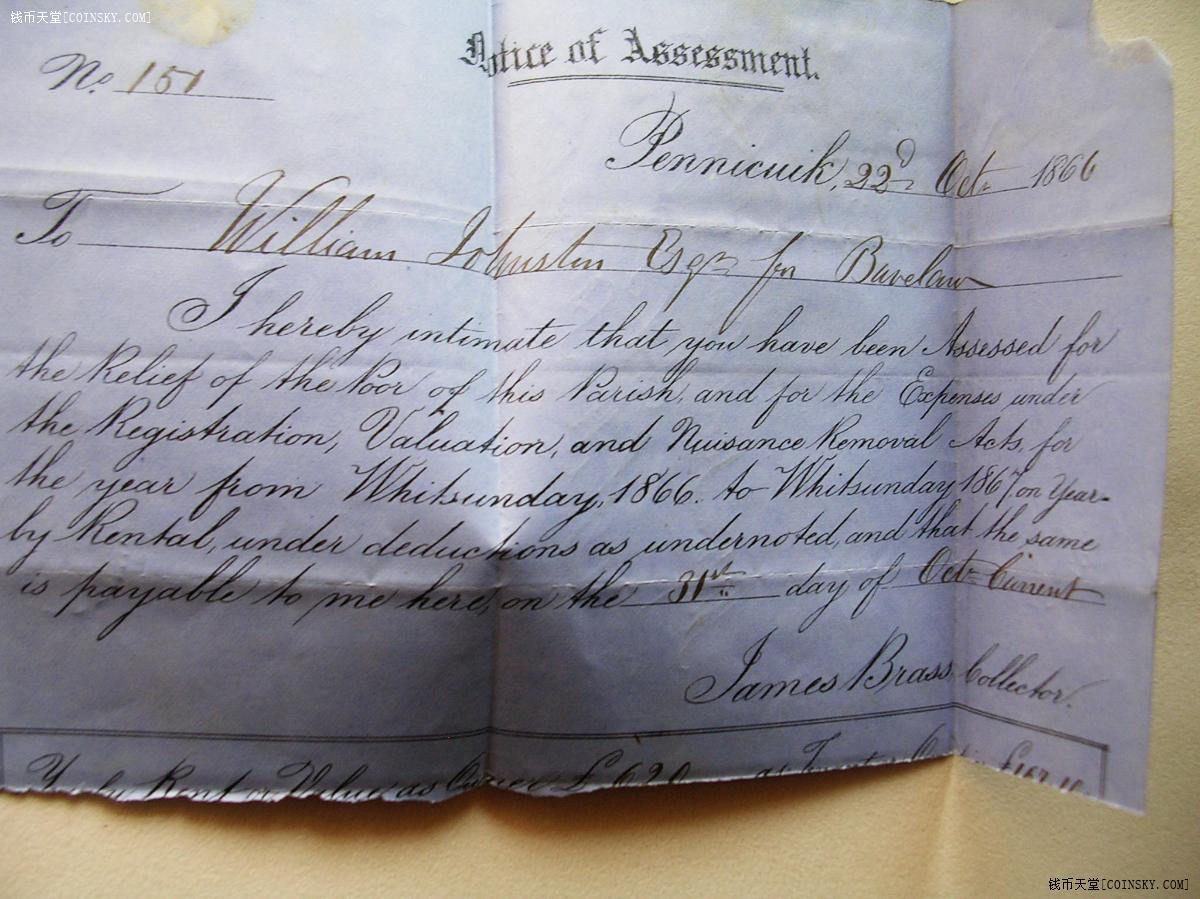 钱币天堂[COINSKY.COM]
Notice of Assessment.
No. 151
Pennicuik, 22d Oct. 1866
To William Johnston Esqr. for Bavelaw
I hereby intimate that you have been Assessed for
the Relief of the Poor of this Parish, and for the Expenses under
the Registration, Valuation, and Nuisance Removal Acts, for
the year from Whitsunday, 1866. to Whitsunday 1867, on Year-
by Rental, under deductions as undernoted, and that the same
is payable to me here, on the 31st day of Oct. Current
James Brass, Collector.
Rent or Value as Owner £ 620 as
钱币天堂[COINSKY.COM]